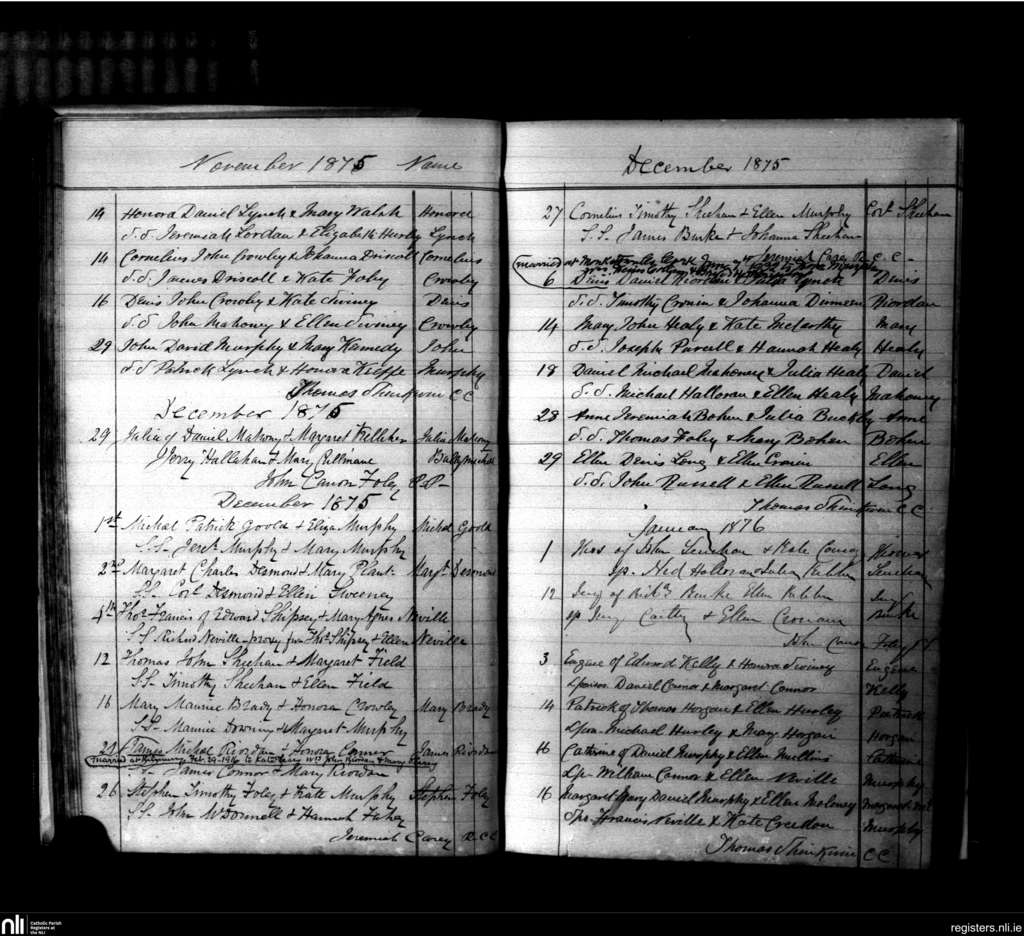 November 1875 Name
14 Honora Daniel Lynch & Mary Walsh Honora
S.S. Jeremiah Lordan & Elizabeth Hurley Lynch
14 Cornelius John Crowley & Johanna Driscoll Cornelius
S.S. James Driscoll & Kate Foley Crowley
16 Denis John Crowley & Kate Twiney Denis
S.S. John Mahoney & Ellen Twiney Crowley
29 John David Murphy & Mary Kennedy John
S.S. Patrick Lynch & Honora Keeffe Murphy
Thomas C.C.
December 1875
29 Julia of Daniel Mahony & Margaret Kelliher Julia Mahony
Jerry Hallahan & Mary Cullinane
John Canon Foley P.P.
December 1875
1st Michal Patrick Goold & Eliza Murphy Michal Goold
S.S. Jereh Murphy & Mary Murphy
2nd Margaret Charles Desmond & Mary Plant Margt Desmond
S.S. Cors Desmond & Ellen Sweeney
4th Thos Francis of Edward Shipsey & Mary Agnes Neville
S.S. Richard Neville proxy for Thos Shipsey & Ellen Neville
12 Thomas John Sheehan & Margaret Field
S.S. Timothy Sheehan & Ellen Field
16 Mary Maurice Brady & Honora Crowley Mary Brady
S.S. Maurice Downing & Margaret Murphy
21 James Michal Riordan & Honora Connor James Riordan
Married at Feb. 29. 1916 to Kate
S.S. James Connor & Mary Riordan
26 Stephen Timothy Foley & Kate Murphy Stephen Foley
S.S. John McDonnell & Hannah Fahey
Jeremiah Carey R.C.C.
December 1875
27 Cornelius Timothy Sheehan & Ellen Murphy Cors Sheehan
S.S. James Burke & Johanna Sheehan
Married at Cork Jeremiah Carey C.C.
6 Denis Daniel Riordan & Lynch Denis
S.S. Timothy Cronin & Johanna Dunneen Riordan
14 Mary John Healy & Kate McCarthy Mary
S.S. Joseph Purcell & Hannah Healy Healy
18 Daniel Michael Mahoney & Julia Healy Daniel
S.S. Michael Halloran & Ellen Healy Mahoney
28 Anne Jeremiah Bohen & Julia Buckley Anne
S.S. Thomas Foley & Mary Bohen Bohen
29 Ellen Denis Long & Ellen Cronin Ellen
S.S. John Russell & Ellen Russell Long
Thomas C.C.
January 1876
1 Thos of John Lenehan & Kate Thomas
sp. Ned Halloran Lenehan
12 Jerry of Richd Burke Ellen Jerry
sp Jerry & Ellen Cronin Burke
John Canon Foley
3 Eugene of Edmond Kelly & Honora Twiney Eugene
Sponsors Daniel Connor & Margaret Connor Kelly
14 Patrick of Thomas Horgan & Ellen Hurley Patrick
Spon. Michael Hurley & Mary Horgan Horgan
16 Catherine of Daniel Murphy & Ellen Mullins Catherine
Sp. William Connor & Ellen Neville Murphy
16 Margaret Mary Daniel Murphy & Ellen Moloney Margaret
Sps. Francis Neville & Kate Creedon Murphy
Thomas C.C.
nli
Catholic Parish
Registers at
the NLI
registers.nli.ie